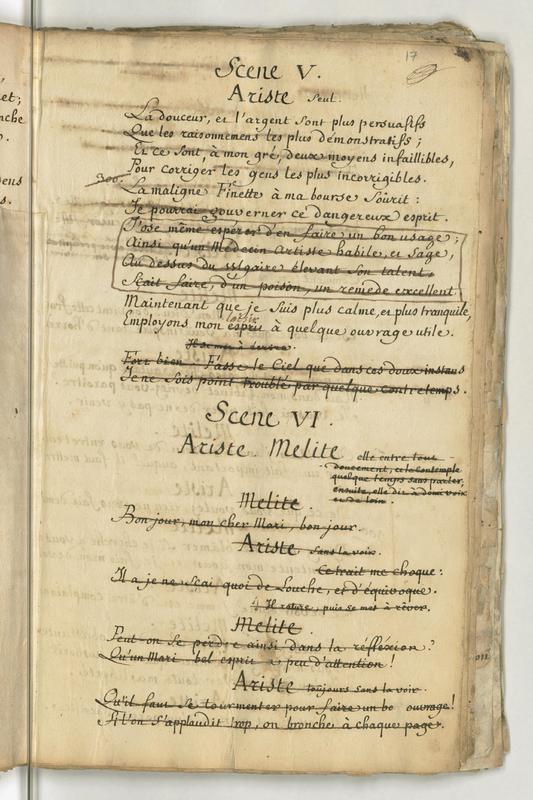 17
Scene V.
Ariste seul.
La douceur, et l'argent sont plus persuasifs
Que les raisonnemens les plus démonstratifs ;
Et ce sont, à mon gré, deux moyens infaillibles,
Pour corriger les gens les plus incorrigibles.
300.
La maligne Finette à ma bourse sourit :
Je pourrai gouverner ce dangereux esprit.
J'ose même espérer d'en faire un bon usage ;
Ainsi qu'un Medecin Artiste habile, et sage,
Au dessus du vulgaire élevant son talent,
Scait faire, d'un poison, un remede excellent.
Maintenant que je suis plus calme, et plus tranquile,
loisir
Employons mon esprit à quelque ouvrage utile.
Il se met à écrire.
Fort bien. Fasse le Ciel que dans ces doux instans
Je ne sois point troublé par quelque contretemps.
Scene VI.
Ariste. Melite
elle entre tout
doucement, et le contemple
quelque temps sans parler,
ensuite, elle dit à demi voix
et de loin.
Melite.
Bon jour, mon cher Mari, bon jour.
Ariste sans la voir.
Ce trait me choque :
Il a je ne scai quoi de louche, et d'équivoque.
Il rature, puis se met à rêver.
Melite.
Peut-on se perdre ainsi dans la réfléxion ?
Qu'un Mari bel esprit a peu d'attention !
Ariste toujours sans la voir.
Qu'il faut se tourmenter pour faire un bo ouvrage !
Si l'on s'applaudit trop, on bronche à chaque page.
et ;
nche
ens
s.